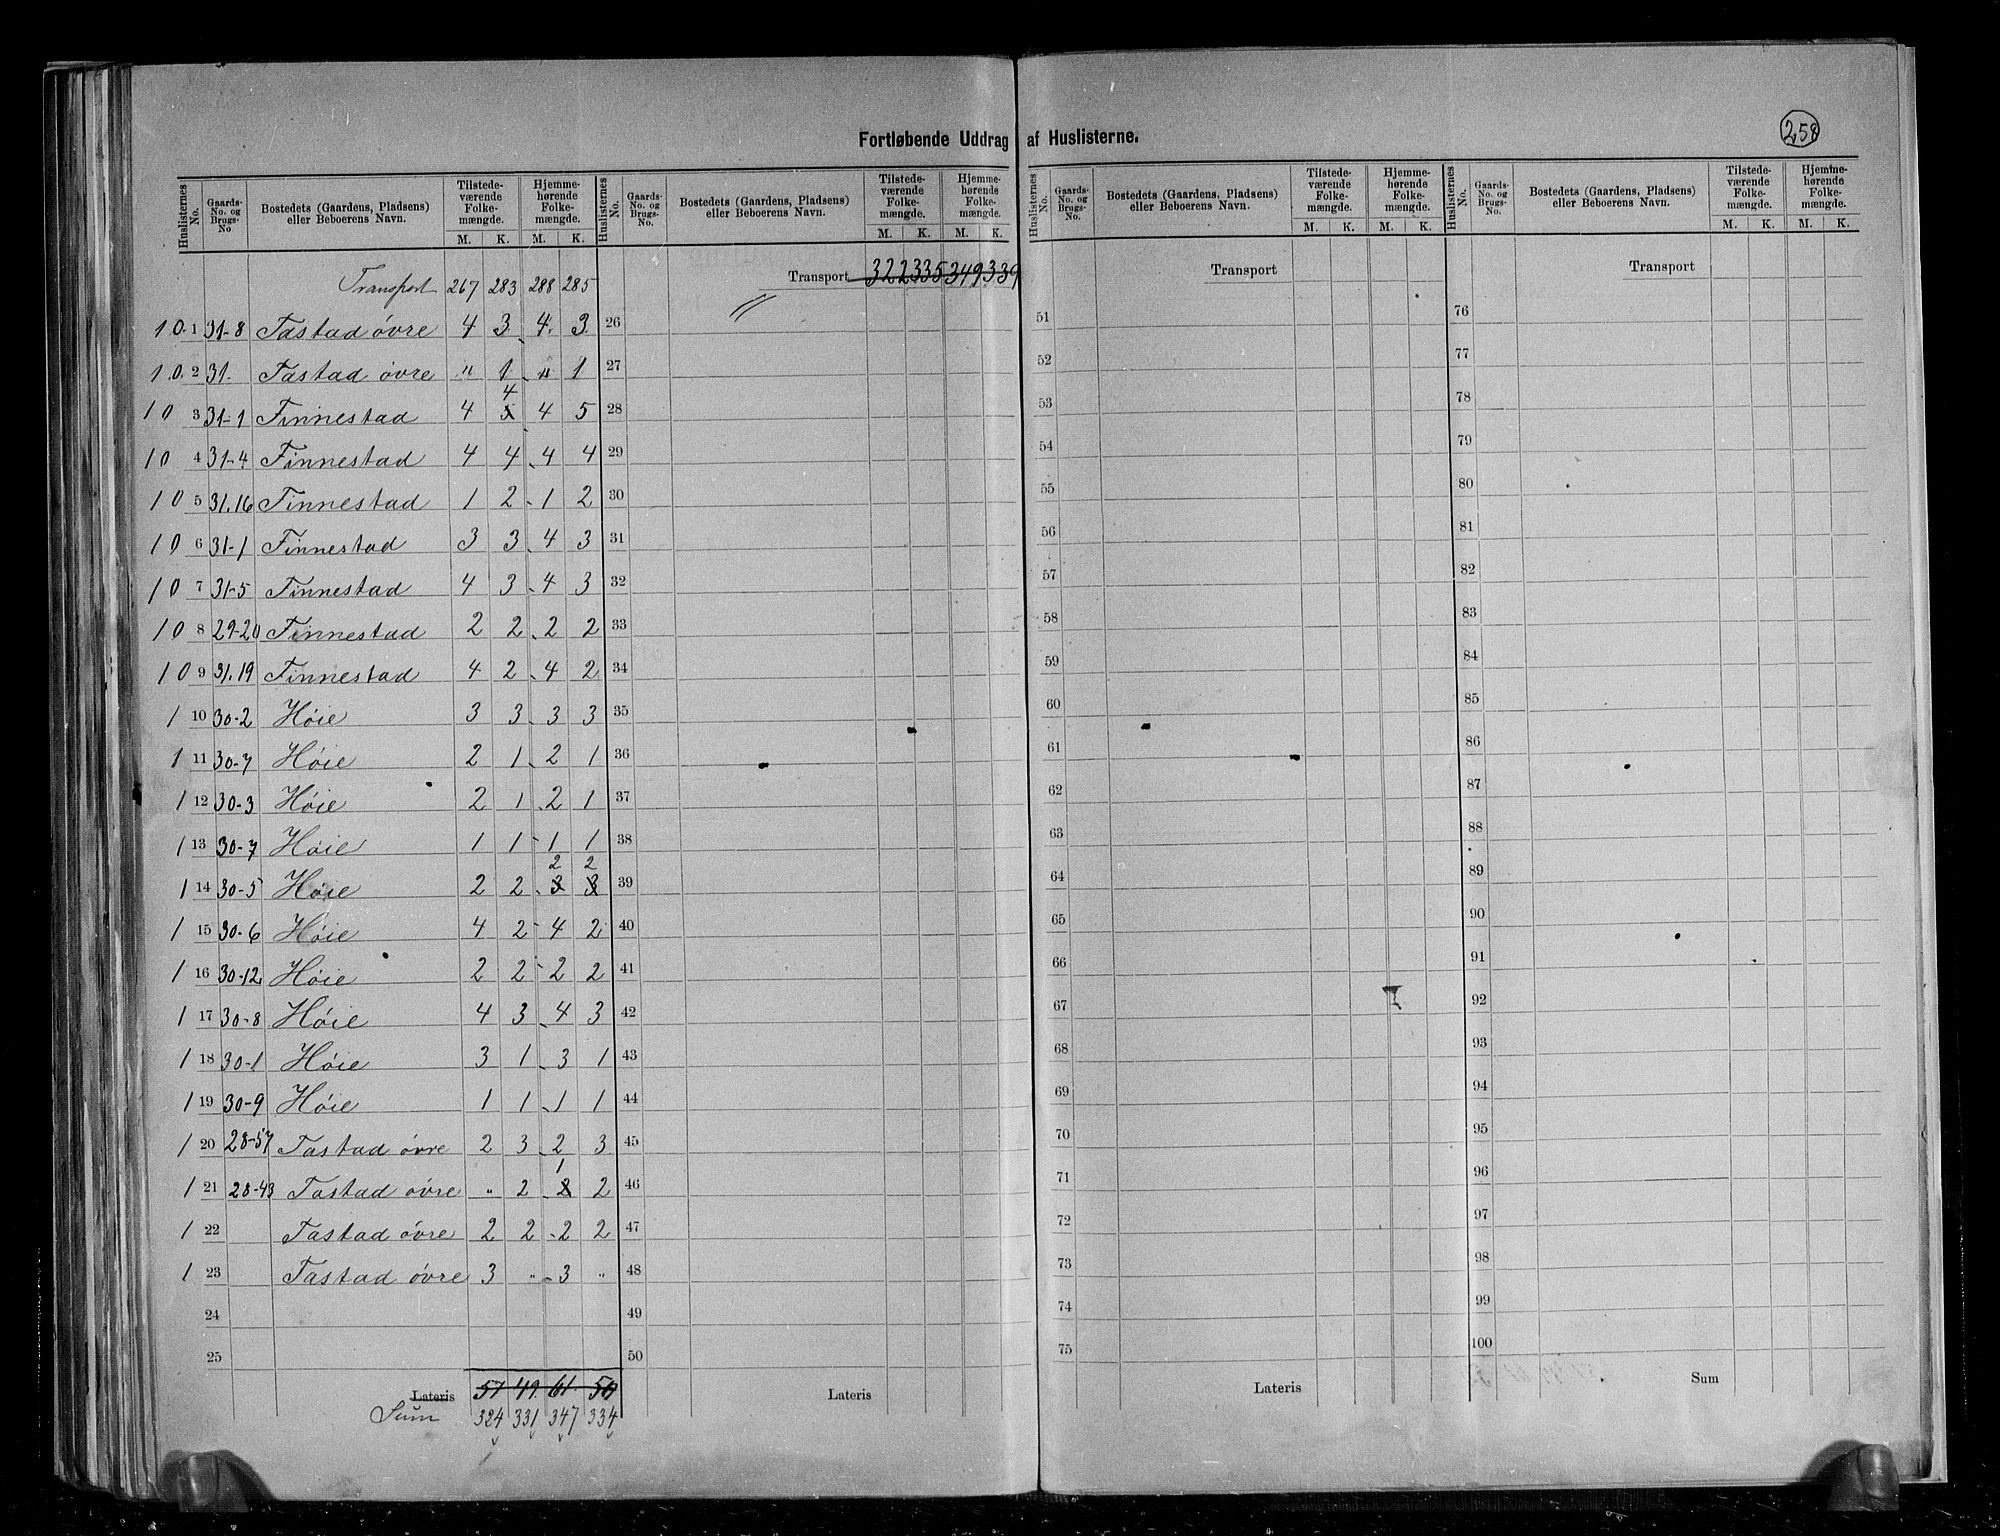 258
Fortløbende Uddrag af Huslisterne.
Huslisternes No. Gaards-No. og Brugs-No. Bostedets (Gaardens, Pladsens) eller Beboerens Navn. Tilstede-værende Folke-mængde. M. K. Hjemme-hørende Folke-mængde. M. K.
Huslisternes No. Gaards-No. og Brugs-No. Bostedets (Gaardens, Pladsens) eller Beboerens Navn. Tilstede-værende Folke-mængde. M. K. Hjemme-hørende Folke-mængde. M. K.
Huslisternes No. Gaards-No. og Brugs-No. Bostedets (Gaardens, Pladsens) eller Beboerens Navn. Tilstede-værende Folke-mængde. M. K. Hjemme-hørende Folke-mængde. M. K.
Huslisternes No. Gaards-No. og Brugs-No. Bostedets (Gaardens, Pladsens) eller Beboerens Navn. Tilstede-værende Folke-mængde. M. K. Hjemme-hørende Folke-mængde. M. K.
Transport 267 283 288 285
10. 1 31-8 Tastad óvre 4 3 4 3
1.0. 2 31. Tastad óvre " 1 " 1
10 3 31-1 Finnestad 4 4 4 5
10 4 31-4 Finnestad 4 4 4 4
10 5 31.16 Finnestad 1 2 1 2
10 6 31-1 Finnestad 3 3 4 3
10 7 31-5 Finnestad 4 3 4 3
10 8 29-20 Finnestad 2 2 2 2
10 9 31.19 Finnestad 4 2 4 2
1 10 30-2 Høie 3 3 3 3
1 11 30-7 Høie 2 1 2 1
1 12 30-3 Høie 2 1 2 1
1 13 30-7 Høie 1 1 1 1
2 2
1 14 30-5 Høie 2 2 3 3
1 15 30-6 Høie 4 2 4 2
1 16 30-12 Høie 2 2 2 2
1 17 30-8 Høie 4 3 4 3
1 18 30-1 Høie 3 1 3 1
1 19 30-9 Høie 1 1 1 1
1 20 28-57 Tastad óvre 2 3 2 3
1
1 21 28-43 Tastad óvre " 2 2 2
1 22 Tastad óvre 2 2 2 2
1 23 Tastad óvre 3 " 3 "
24
25
Lateris 57 49. 61. 50
Sum 324 331 347 334
Transport 322 335 349 339
26 "
27
28
29
30
31
32
33
34
35
36
37
38
39
40
41
42
43
44
45
46
47
48
49
50
Lateris
Transport
51
52
53
54
55
56
57
58
59
60
61
62
63
64
65
66
67
68
69
70
71
72
73
74
75
Lateris
Transport
76
77
78
79
80
81
82
83
84
85
86
87
88
89
90
91
92
93
94
95
96
97
98
99
100
Sum